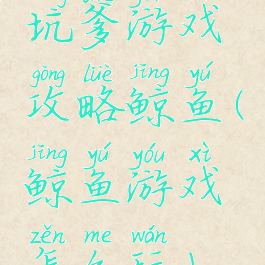 坑爹游戏
gōng lüè jīng yú
攻略鲸鱼(
jīng yú yóu xì
鲸鱼游戏
zěn me wán
怎么玩)